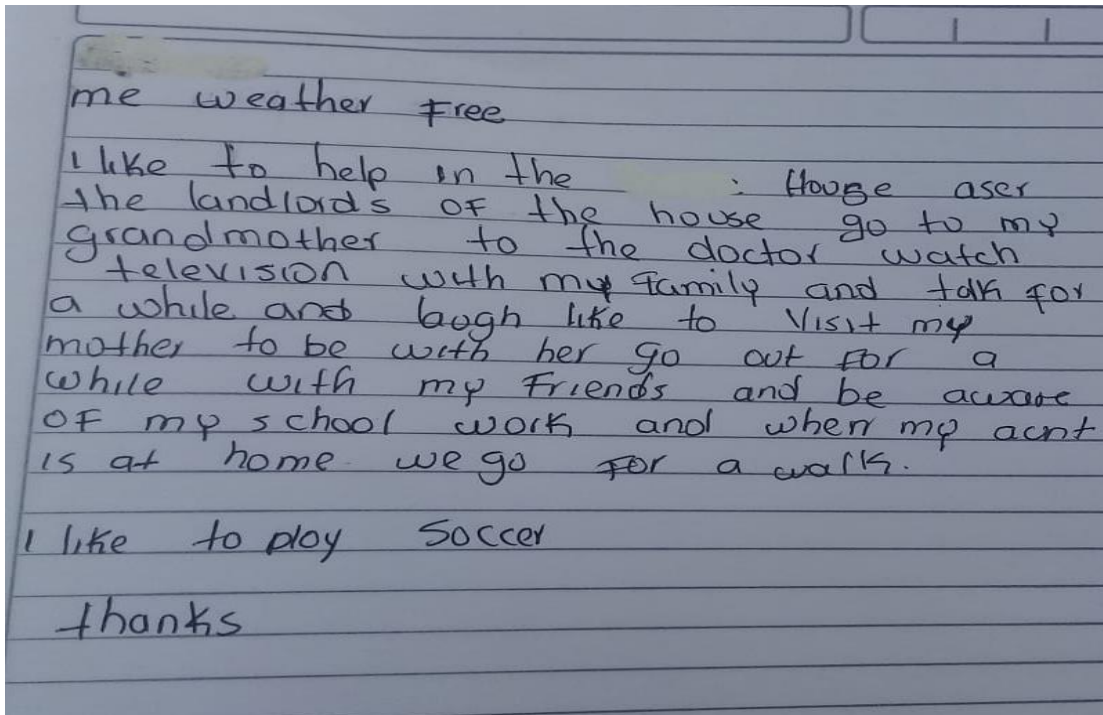 me weather Free
I like to help in the : House aser
the landlords OF the house go to my
grandmother to the doctor watch
television with my family and talk for
a while and laogh like to Visit my
mother to be with her go out For a
while with my Friends and be aware
OF my school work and when my acnt
is at home. we go For a walk.
I like to play Soccer
thanks